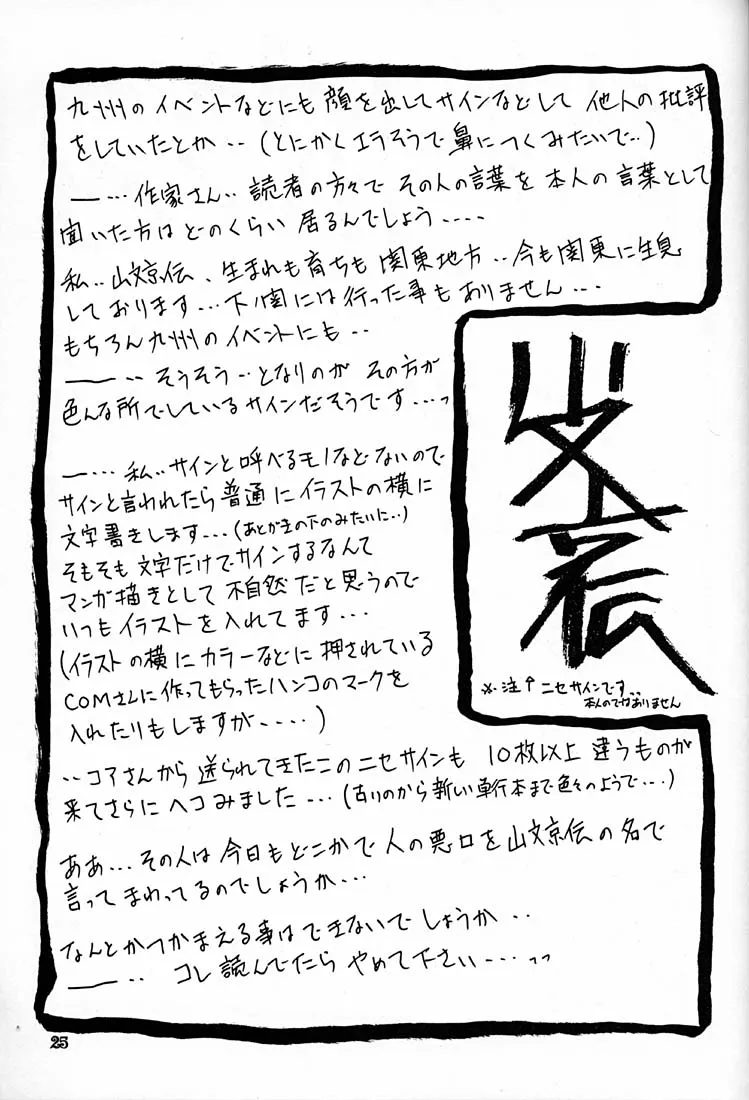 九州のイベントなどにも顔を出してサインなどして 他人の批評
をしていたとか‥(とにかくエラそうで鼻につくみたいで‥)
―…作家さん‥読者の方々で その人の言葉を 本人の言葉として
聞いた方は どのくらい 居るんでしょう‥‥
私‥山文京伝、生まれも育ちも 関東地方‥今も関東に生息
しております…下ノ関には行った事もありません…
もちろん九州のイベントにも‥
―‥そうそう‥となりのが その方が
色んな所でしているサインだそうです…っ
―…私‥サインと呼べるモノなどないので
サインと言われたら普通にイラストの横に
文字書きします…(あとがきの下のみたいに‥)
そもそも文字だけでサインするなんて
マンガ描きとして 不自然だと思うので
いつもイラストを入れてます…
(イラストの横にカラーなどに押されている
COMさんに作ってもらったハンコのマークを
入れたりもしますが‥‥)
山文京伝
※注↑ニセサインです‥
本人のではありません
‥コアさんから送られてきたこのニセサインも 10枚以上 違うものが
来てさらにヘコみました…(古いのから新しい単行本まで色々のようで…)
ああ…その人は今日もどこかで人の悪口を山文京伝の名で
言ってまわってるのでしょうか…
なんとかつかまえる事はできないでしょうか‥
―‥ コレ読んでたら やめて下さい…っっ
25